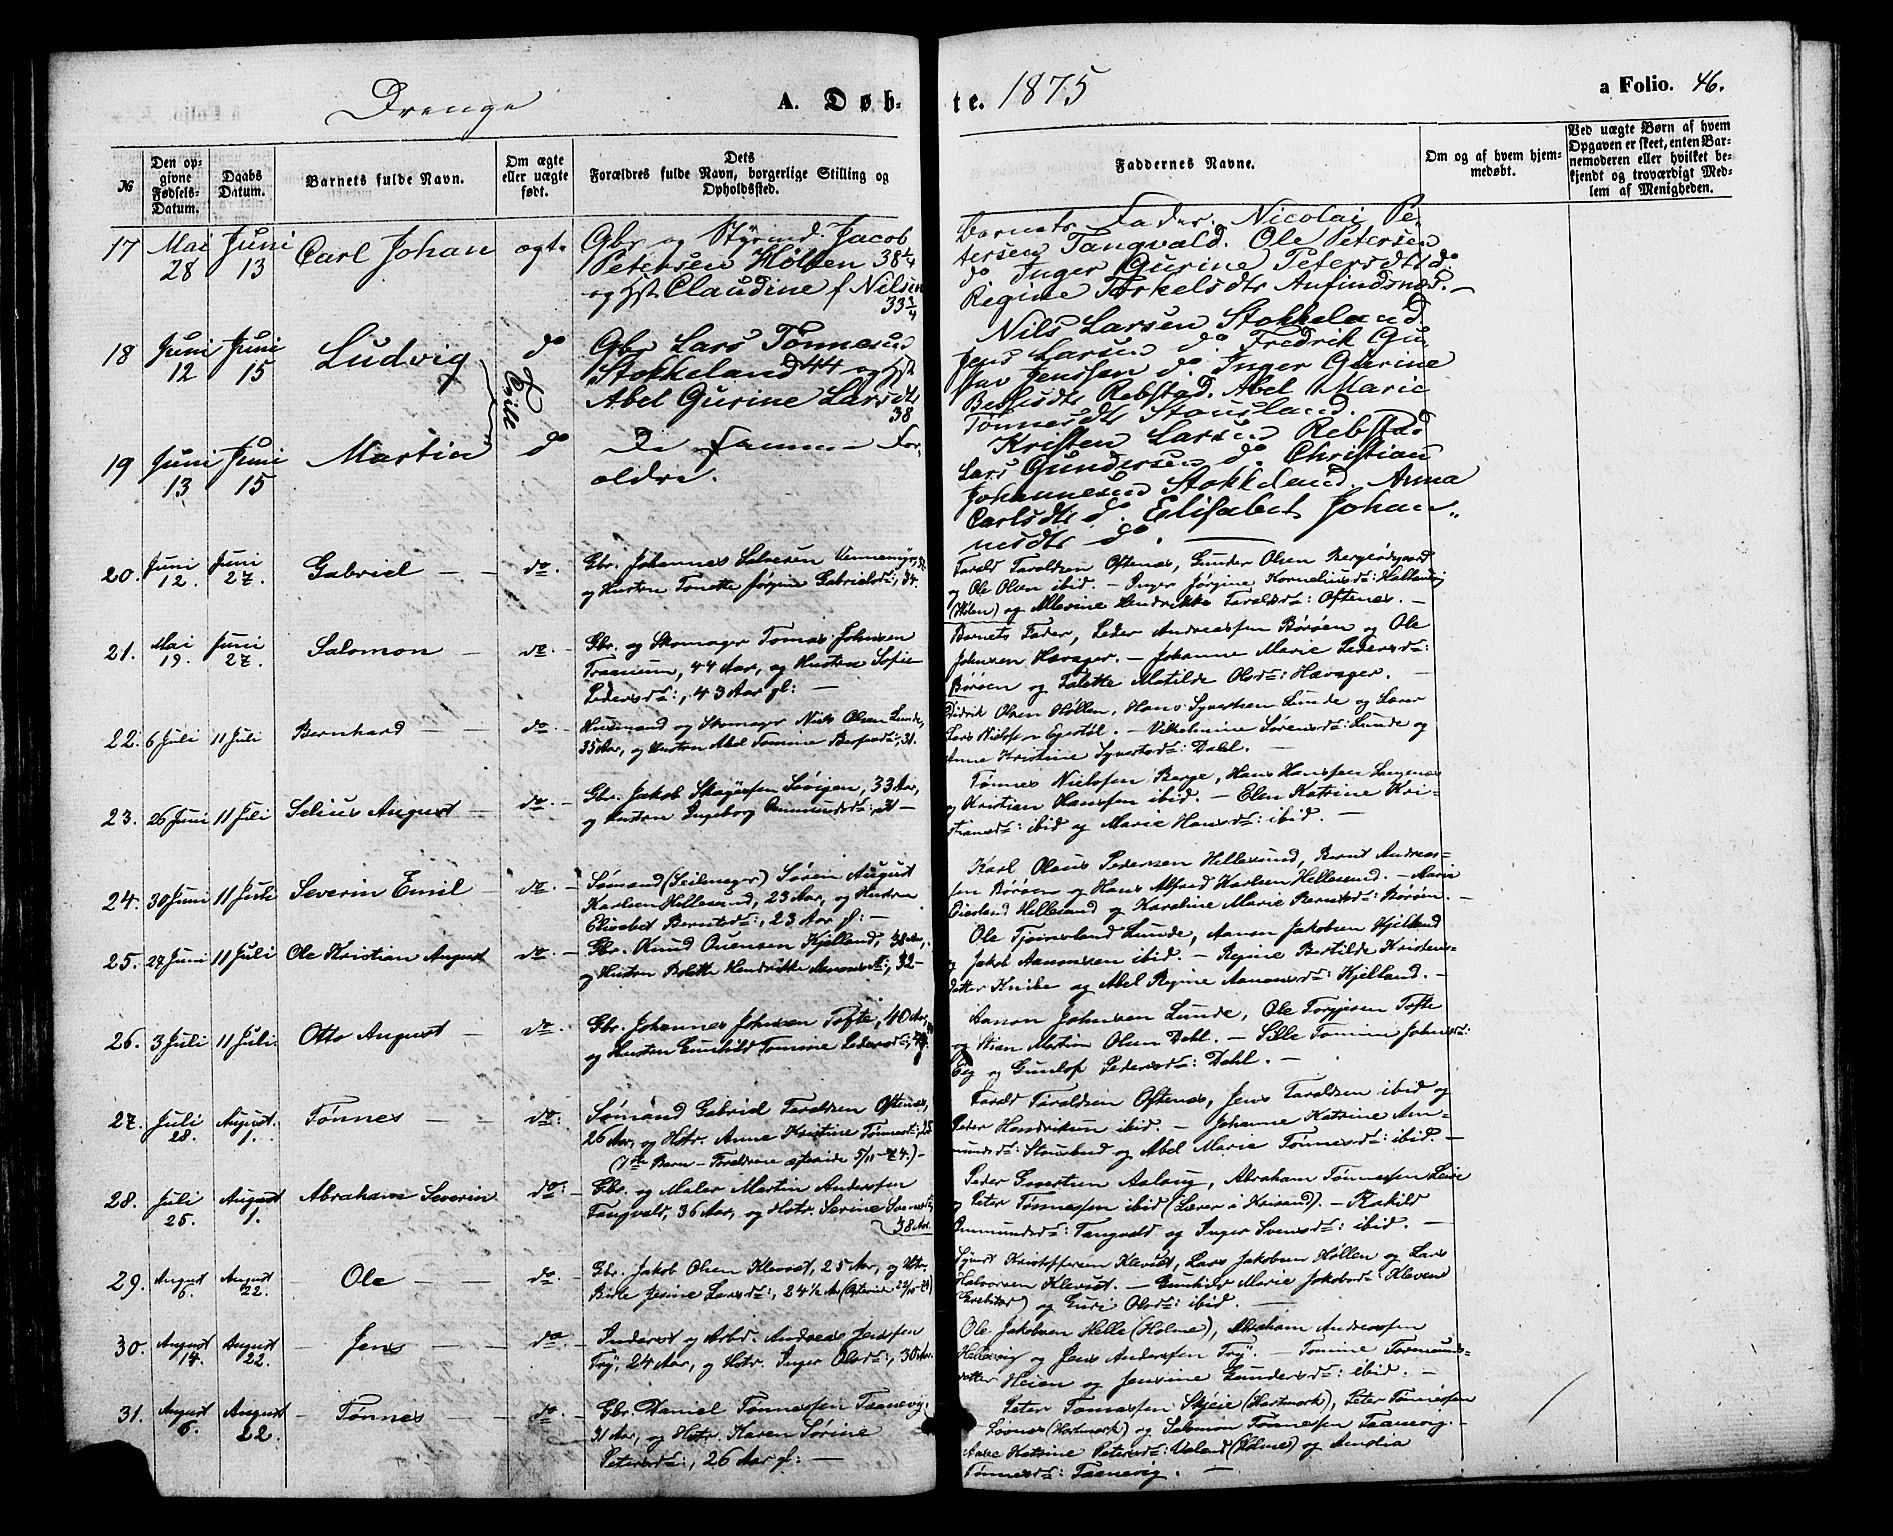 Drenge A. Døb- te. 1875 a Folio. 46.
№
Den op-
givne
Fødsels-
Datum.
Daabs
Datum.
Barnets fulde Navn.
Om ægte
eller uægte
født.
Dets
Forældres fulde Navn, borgerlige Stilling og
Opholdssted.
Faddernes Navne.
Om og af hvem hjem-
medøbt.
Ved uægte Børn af hvem
Opgaven er skeet, enten Bar-
nemoderen eller hvilket be-
kjendt og troværdigt Med-
lem af Menigheden.
17 Mai 28 Juni 13 Carl Johan ægte
Gbr og Styrmd. Jacob
Petersen Høllen 38 1/4
og Hst Claudine f Nilsen
33 3/4
Barnets Fader. Nicolai Pe-
tersen Tangvald. Ole Petersen
do Inger Gurine Petersdtr do
Regine Torkelsdtr Anfindsnæs. —
18 Juni 12 Juni 15 Ludvig do
Tvill
Gbr Lars Tønnesen
Stokkeland 44 og Hst
Abel Gurine Larsdtr
38
Nils Larsen Stokkeland
Jens Larsen do Fredrik Gu-
stav Jenssen do. Inger Gurine
Rebstad. Abel Marie
Tønnesdtr Stousland.
19 Juni 13 Juni 15 Martin do
De samme For-
ældre.
Kristen Larsen Rebstad
Lars Gundersen do Christian
Johannesen Stokkeland. Anna
Carlsdtr do. Elisabet Johan-
nesdtr do. —
20. Juni 12. Juni 27. Gabriel — — do.
Gbr. Johannes Salvesen Vennemyr,
og Hustru Tonette Jørgine Gabrielsdr:, 34.
Tarald Taraldsen Oftenæs, Gunder Olsen
og Ole Olsen ibid. — Inger Jørgine Korneliusdr:
(Holen) og Hendrikke Taraldsdr: Oftenæs. —
21. Mai 19. Juni 27. Salomon — do. —
Gbr. og Skomager Tomas Johnsen
Traneim, 44 Aar, og Hustru Sofie
Pedersdr:, 43 Aar gl: —
Barnets Fader, Peder Andreassen Børøen og Ole
Johnsen Havager. — Johanne Marie Pedersdr:
Børøen og Talette Matilde Olsdr: Havager. —
22. 6 Juli 11 Juli Bernhard — — do. —
Husmand og Skomager Niels Olsen Lunde,
35 Aar, og Hustru Abel Tomine 31.
Didrik Olsen Høllen, Hans Syvertsen Lunde og Lærer
Lars Egestøl. — Vilhelmine Sørensdr: Lunde og
Anne Kristine Syvertsdr: Dahl. —
23. 26 Juni 11 Juli Selius August — do. —
Gbr. Jakob 33 Aar,
og Hustru Ingeborg 31 —
Tønnes Nielsen Berge, Hans Hanssen Langenes
og Kristian Hanssen ibid. — Elen Katrine Kri-
stiansdr: ibid og Marie Hansdr: ibid. —
24. 30 Juni 11 Juli Severin Emil — do. —
Sømand (Seilmager) Søren August
Karlsen Hellesund, 23 Aar, og Hustru
Elisabet Berntsdr:, 23 Aar gl: —
Karl Olaus Pedersen Hellesund, Bernt Andreas-
sen Børøen og Hans Alfred Karlsen Hellesund. — Marie
Hellesund og Karoline Marie Berntsdr: Børøen. —
25. 24 Juni 11 Juli Ole Kristian August do. —
Gbr. Knud Kjelland, 38 Aar,
og Hustru Bolette Hendrikke Aanonsdr:, 32 —
Ole Tjomsland Lunde, Aanon Jakobsen Kjelland
og Jakob Aanonsen ibid. — Regine Bertilde Kristens-
datter Knibe og Abel Regine Aanonsdr: Kjelland. —
26. 3 Juli 11 Juli Otto August — do. —
Gbr. Johannes Johnsen Tofte, 40 Aar,
og Hustru Gunhild Tomine Pedersdr:,
Aanon Johnsen Lunde, Ole Torgjusen Tofte
og Stian Martin Olsen Dahl. — Sille Tomine Johnsdr:
Eeg og Gunlof Pedersdr: Dahl. —
27. Juli 28. August 1. Tønnes — — do:
Sømand Gabriel Taraldsen Oftenæs,
26 Aar, og Hstr. Anne Kristine Tønnesdr:,
(1ste Barn — Forældrene ægteviede 5/11 — 74.) —
Tarald Taraldsen Oftenæs, Jens Taraldsen ibid og
Peder Hendriksen ibid. — Johanne Katrine Am-
mundsdr: Stousland og Abel Marie Tønnesdr: ibid. —
28. Juli 25. August 1. Abraham Severin do:
Gbr. og Maler Martin Anderssen
Tangvald, 36 Aar, og Hstr. Serine
38 Aar.
Peder Govertsen Aalaug, Abraham Tønnessen
og Peter Tønnessen ibid (Lærer i Krisand). — Rakild
Ammundsdr: Tangvald og Inger Svensdr: ibid. —
29. August 6. August 22. — Ole — — do. —
Gbr. Jakob Olsen Klevset, 25 Aar, og Hstr.
Birte Jesine Larsdr:, 24 1/2 Aar
Syvert Kristoffersen Klevset, Lars Jakobsen Høllen og Lars
Halvorsen Klevset. — Gunhilde Marie Jakobsdr: Kleven
og Guri Olsdr: ibid. —
30. August 14. August 22. — Jens — — do —
Inderst og Arbd. Andreas Jenssen
Try, 24 Aar, og Hstr. Inger Olsdr:, 30 Aar.
Ole Jakobsen Helle (Holme), Abraham Andreassen
Hellevig og Jens Anderssen Try. — Tomine Tormunds-
datter Heien og Jensine Gundersdr: ibid. —
31. August 6. August 22. — Tønnes — — do. —
Gbr. Daniel Tønnessen Taanevig,
31 Aar, og Hstr. Karen Sørine
Petersdr:, 26 Aar gl: —
Peter Tomassen Skjeie (Hartmark), Peter Tønnessen
(Hartmark) og Salomon Tønnessen Taanevig. —
Katrine Petersdr: Valand (Holme) og Amalia
Tønnesdr: Taanevig. —